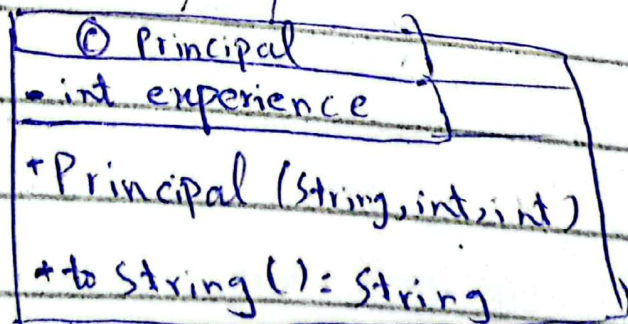 © Principal
- int experience
+ Principal (String, int, int)
+ to String () : String